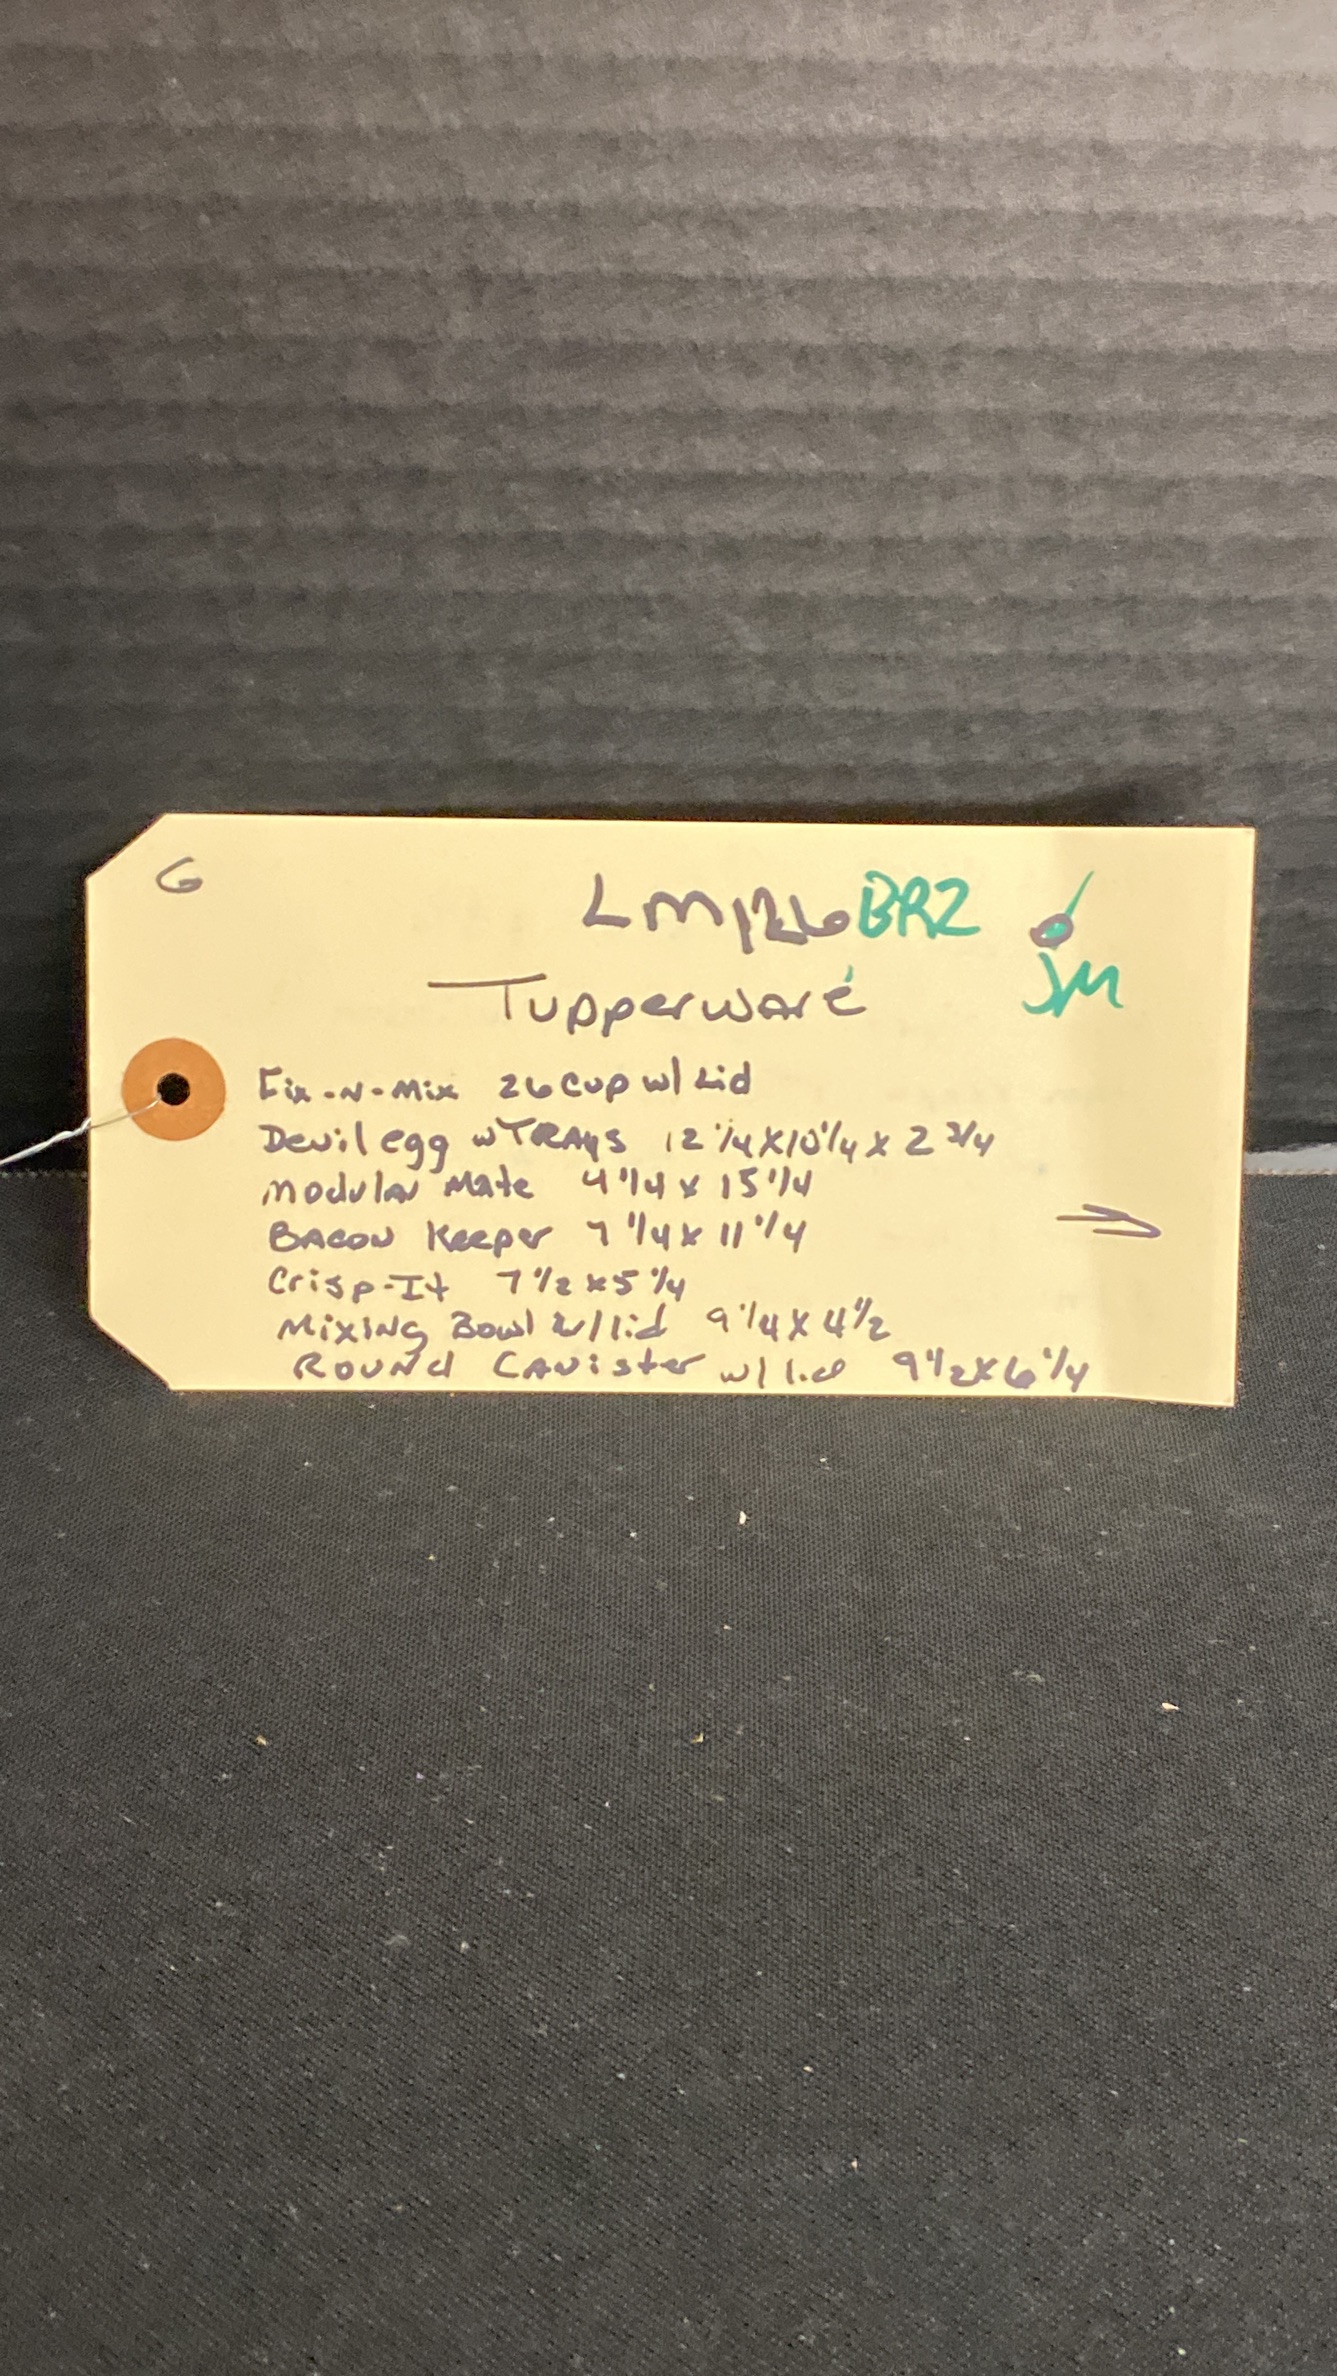 G
LM126 BR2
JM
Tupperware
Fix-N-Mix 26 cup w/ Lid
Devil egg w TRAys 12 1/4 x 10 1/4 x 2 3/4
Modular Mate 4 1/4 x 15 1/4
BACON Keeper 7 1/4 x 11 1/4
Crisp-It 7 1/2 x 5 1/4
MixiNg Bowl w/ lid 9 1/4 x 4 1/2
ROUNd CANister w/ lid 9 1/2 x 6 1/4